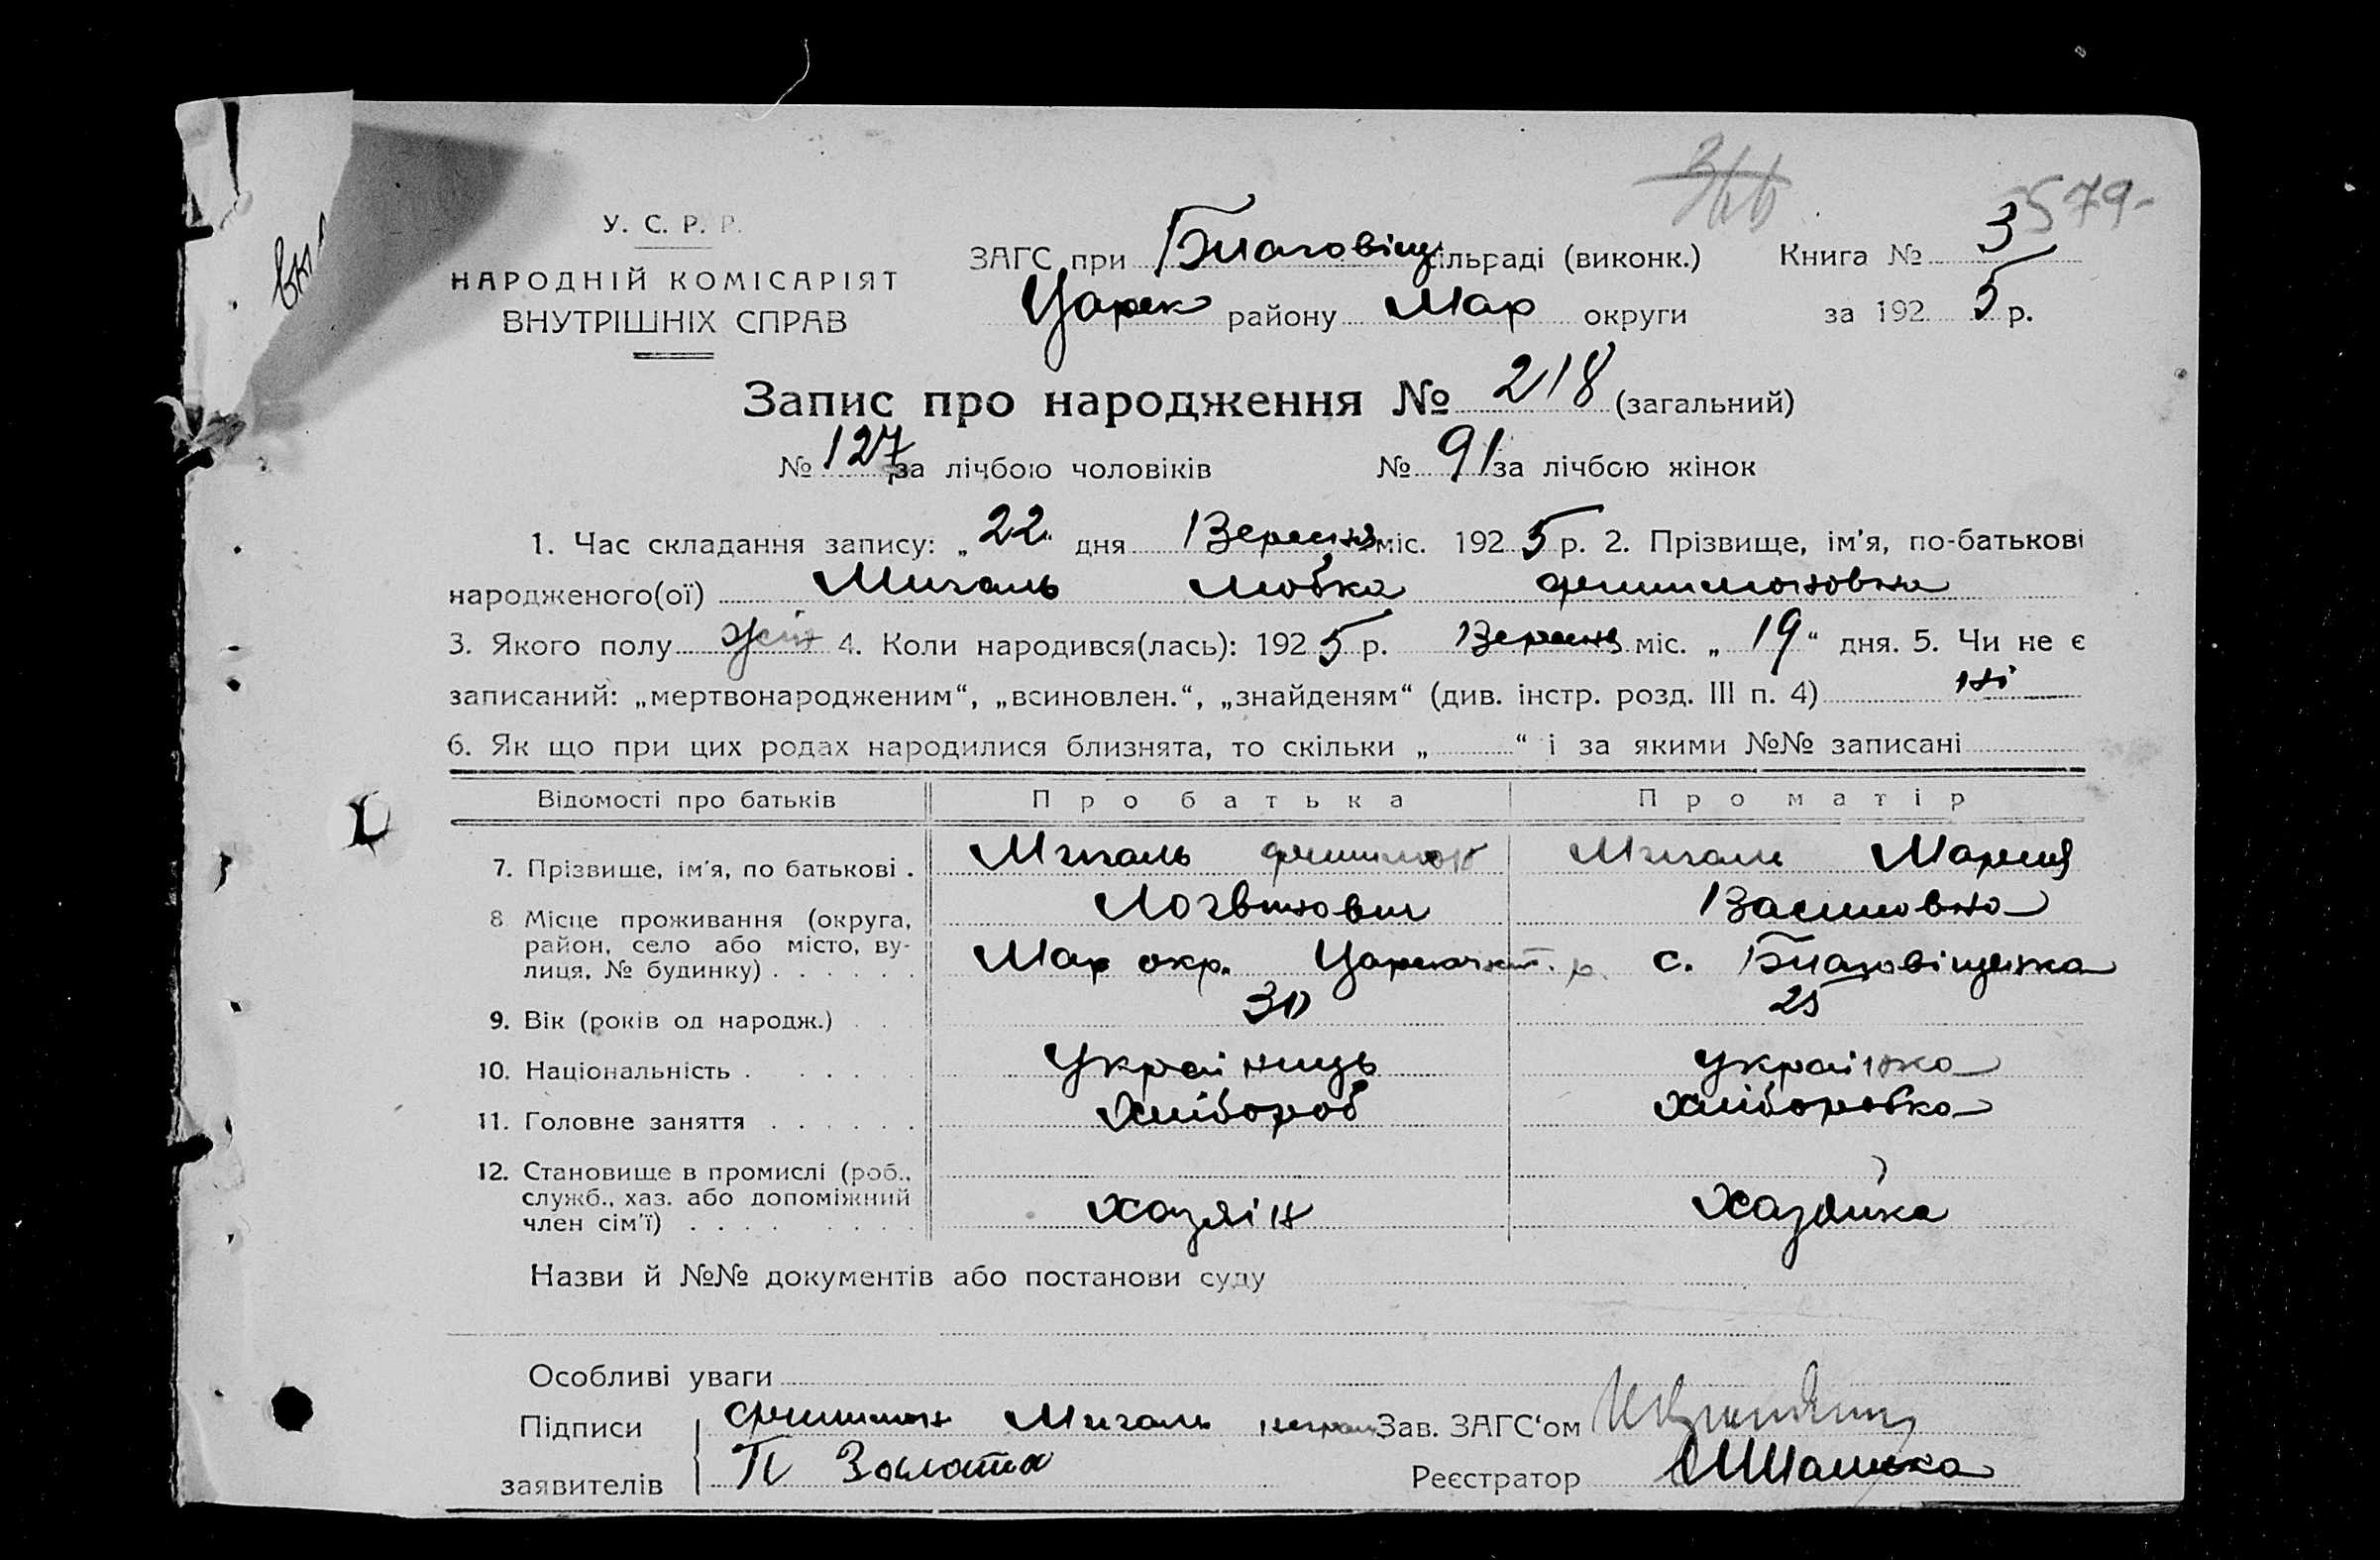 579-
У. С. Р. Р.
ЗАГС при Благовіщ сільраді (виконк.) Книга № 3
НАРОДНІЙ КОМІСАРІЯТ
ВНУТРІШНІХ СПРАВ
Царек району Мар округи за 1925 р.
Запис про народження № 218 (загальний)
№ 127 за лічбою чоловіків № 91 за лічбою жінок
1. Час складання запису: „22“ дня Вересня міс. 1925 р. 2. Прізвище, ім'я, по-батькові
народженого(ої) Мигаль Любка Филимоновна
3. Якого полу жін 4. Коли народився(лась): 1925 р. Вересня міс. „19“ дня. 5. Чи не є
записаний: „мертвонародженим“, „всиновлен.“, „знайденям“ (див. інстр. розд. III п. 4) ні
6. Як що при цих родах народилися близнята, то скільки „ “ і за якими №№ записані
Відомості про батьків Про батька Про матір
7. Прізвище, ім'я, по батькові . Мигаль Филимон Мигаль Мария
Логвинович Василовна
8 Місце проживання (округа,
район, село або місто, ву-
лиця, № будинку) . . . . . . Мар окр. Царичант. р. с. Благовіщенка
9. Вік (років од народж.) 30 25
10. Національність . Українець українка
11. Головне заняття Хлібороб хліборобка
12. Становище в промислі (роб.,
служб., хаз. або допоміжний
член сім'ї) хазяїн хазяйка
Назви й №№ документів або постанови суду
Особливі уваги
Підписи Филимон Мигаль неграм Зав. ЗАГС‘ом
заявителів П Золота Реєстратор